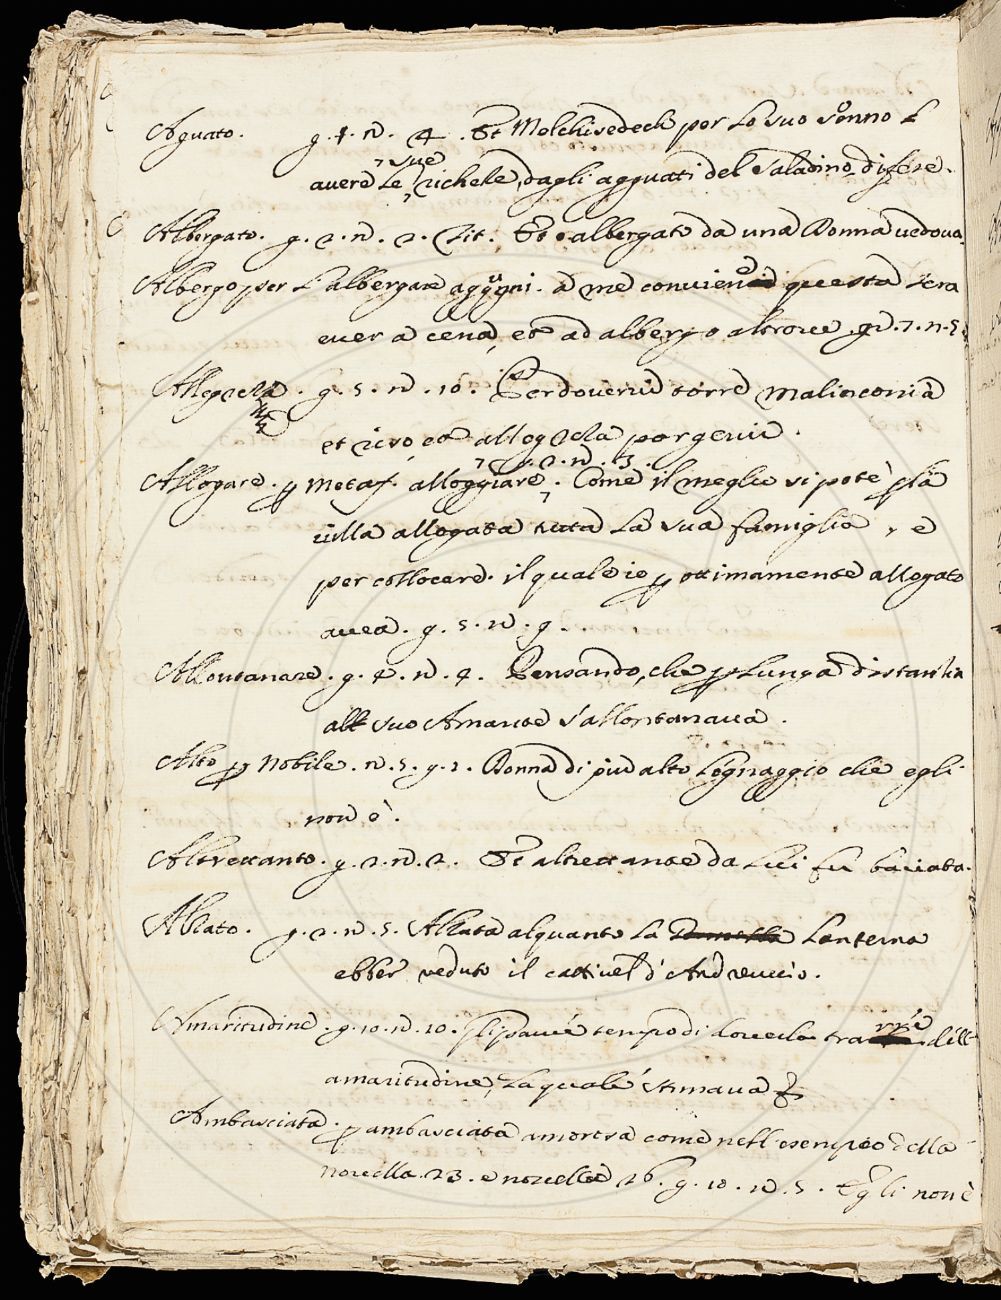 Aguato. g. 1. N. 4. Et Melchisedech per lo suo sonno l
avere le sue richeze dagli agguati del Saladino difese.
Albergato. g. 2. N. 2. tit. Et è albergato da una Donna vedova.
Albergo per l'albergare a me conviene questa sera
aver a cena, et ad albergo altrove. g. 7. N. 5
Allegreza. g. 5. N. 10. Per dovervi torre malinconia
et riso et allegreza porgervi.
g. 2. N. 3.
Allogare. p Metaf. alloggiare. Come il meglio si potè p la
villa allogata tutta la sua famiglia, e
per collocare. il quale io ottimamente allogato
avea. g. 5. N. 9.
Allontanare. g. 4. N. 4. Pensando, che p lunga distantia
al suo Amante s'allontanava.
Alto p Nobile. N. 5. g. 2. Donna di più alto legnaggio che egli
non è.
Altrettanto. g. 2. N. 2. Et altrettante da lui fu baciata.
Alzato. g. 2. N. 5. Alzata alquanto la lanterna
ebber veduto il cattivel d'Andreuccio.
Amaritudine. g. 10. N. 10. gli parve tempo di doverla trarre dell'
amaritudine, la quale stimava &
Ambasciata. p ambasciata amorosa come nell'esempio della
novella 23. e novella 26. g. 10. N. 5. Egli non è